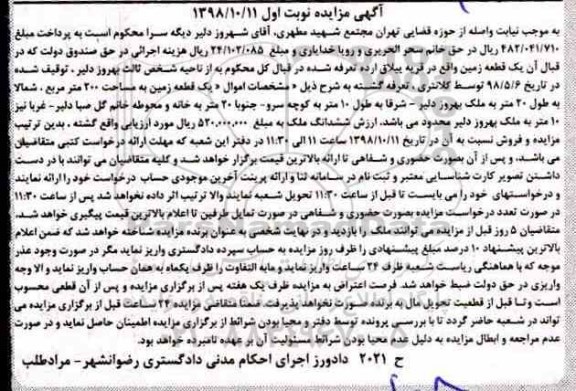 آگهی مزایده نوبت اول ۱۳۹۸/۱۰/۱۱
به موجب نیابت واصله از حوزه قضایی تهران مجتمع شهید مطهری، آقای شهروز دلیر دیگه سرا محکوم است به پرداخت مبلغ
۴۸۲/۰۴۱/۷۱۰ ریال در حق خانم سحر الحریری و رویا خدایاری و مبلغ ۲۴/۱۰۲/۰۸۵ ریال هزینه اجرائی در حق صندوق دولت که در
قبال آن یک قطعه زمین واقع در قریه ییلاق ارده تعرفه شده در قبال کل محکوم به از ناحیه شخص ثالث بهروز دلیر، توقیف شده
در تاریخ ۹۸/۵/۶ توسط کلانتری، تعرفه گشته به شرح ذیل « مشخصات اموال » یک قطعه زمین به مساحت ۲۰۰ متر مربع، شمالا
به طول ۲۰ متر به ملک بهروز دلیر- شرقا به طول ۱۰ متر به کوچه سرو- جنوبا ۲۰ متر به خانه و محوطه خانم گل صبا دلیر- غربا نیز
۱۰ متر به ملک بهروز دلیر محدود می باشد. ارزش ششدانگ ملک به مبلغ ۵۲۰,۰۰۰,۰۰۰ ریال مورد ارزیابی واقع گشته، بدین ترتیب
مزایده و فروش نسبت به آن در تاریخ ۱۳۹۸/۱۰/۱۱ ساعت ۱۱ الی ۱۱:۳۰ در دفتر این شعبه که مهلت ارائه درخواست کتبی متقاضیان
می باشد، و پس از آن بصورت حضوری و شفاهی تا ارائه بالاترین قیمت برگزار خواهد شد و کلیه متقاضیان می توانند با در دست
داشتن تصویر کارت شناسایی معتبر و ثبت نام در سامانه ثنا و ارائه پرینت آخرین موجودی حساب درخواست خود را ارائه نمایند
و درخواستهای خود را می بایست تا قبل از ساعت ۱۱:۳۰ تحویل شعبه نمایند والا ترتیب اثر داده نخواهد شد پس از ساعت ۱۱:۳۰
در صورت تعدد درخواست مزایده بصورت حضوری و شفاهی در صورت تمایل طرفین تا اعلام بالاترین قیمت پیگیری خواهد شد.
متقاضیان ۵ روز قبل از مزایده می توانند ملک را بازدید و در نهایت شخصی به عنوان برنده مزایده شناخته خواهد شد که ضمن اعلام
بالاترین پیشنهاد ۱۰ درصد مبلغ پیشنهادی را ظرف روز مزایده به حساب سپرده دادگستری واریز نماید مگر در صورت وجود عذر
موجه که با هماهنگی ریاست شعبه ظرف ۲۴ ساعت واریز نماید و مابه التفاوت را ظرف یکماه به همان حساب واریز نماید و الا وجه
واریزی در حق دولت ضبط خواهد شد. فرصت اعتراض به مزایده ظرف یک هفته پس از برگزاری مزایده و پس از آن قطعی محسوب
است و تا قبل از قطعیت تحویل مال به برنده صورت نخواهد پذیرفت. ضمنا متقاضی مزایده ۲۴ ساعت قبل از برگزاری مزایده می
تواند در شعبه حاضر گردد تا با بررسی پرونده توسط دفتر و محیا بودن شرائط از برگزاری مزایده اطمینان حاصل نماید و در صورت
عدم مراجعه و ابطال مزایده به دلیل عدم محیا بودن شرائط مسئولیت آن بر عهده نامبرده خواهد بود.
ح ۲۰۲۱ دادورز اجرای احکام مدنی دادگستری رضوانشهر- مرادطلب